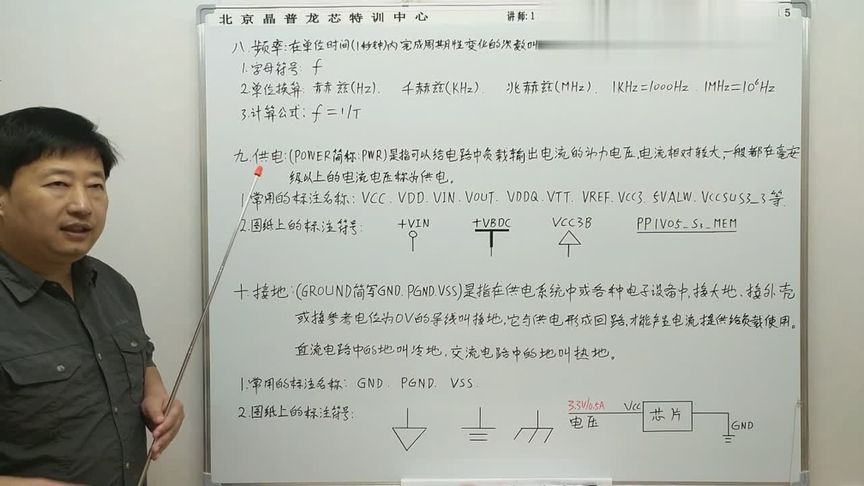 北京晶普龙芯特训中心 讲师:1 5
八.频率:在单位时间(1秒钟)内完成周期性变化的次数叫
1.字母符号: f
2.单位换算: 赫兹(Hz). 千赫兹(KHz). 兆赫兹(MHz). 1KHz=1000Hz. 1MHz=10⁶Hz
3.计算公式: f=1/T
九.供电:(POWER简称:PWR)是指可以给电路中负载输出电流的动力电压.电流相对较大,一般都在毫安
级以上的电流电压称为供电。
1.常用的标注名称: VCC. VDD. VIN. VOUT. VDDQ. VTT. VREF. VCC3. 5VALW. VCCSUS3_3等.
2.图纸上的标注符号: +VIN +VBDC VCC3B PP1V05_S3_MEM
十.接地:(GROUND简写GND.PGND.VSS)是指在供电系统中或各种电子设备中,接大地、接外壳
或接参考电位为0V的导线叫接地,它与供电形成回路,才能产生电流提供给负载使用。
直流电路中的地叫冷地,交流电路中的地叫热地。
1.常用的标注名称: GND. PGND. VSS.
2.图纸上的标注符号: 3.3V/0.5A 电压 Vcc 芯片 GND